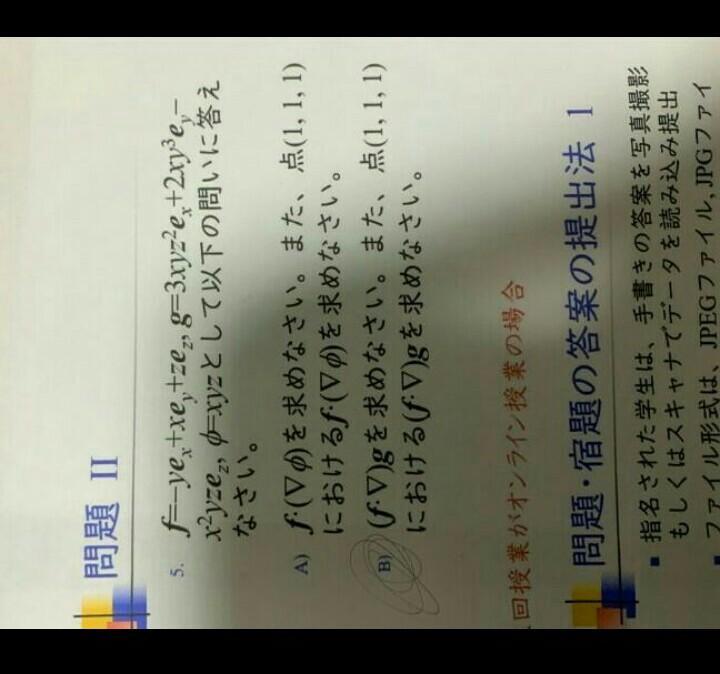 問題 II
5. f=−ye_x+xe_y+ze_z, g=3xyz²e_x+2xy³e_y−
x²yze_z, ϕ=xyzとして以下の問いに答え
なさい。
A) f·(∇ϕ)を求めなさい。また、点(1, 1, 1)
におけるf·(∇ϕ)を求めなさい。
B) (f·∇)gを求めなさい。また、点(1, 1, 1)
における(f·∇)gを求めなさい。
回授業がオンライン授業の場合
問題・宿題の答案の提出法 1
▪ 指名された学生は、手書きの答案を写真撮影
もしくはスキャナでデータを読み込み提出
▪ ファイル形式は、JPEGファイル, JPGファイ